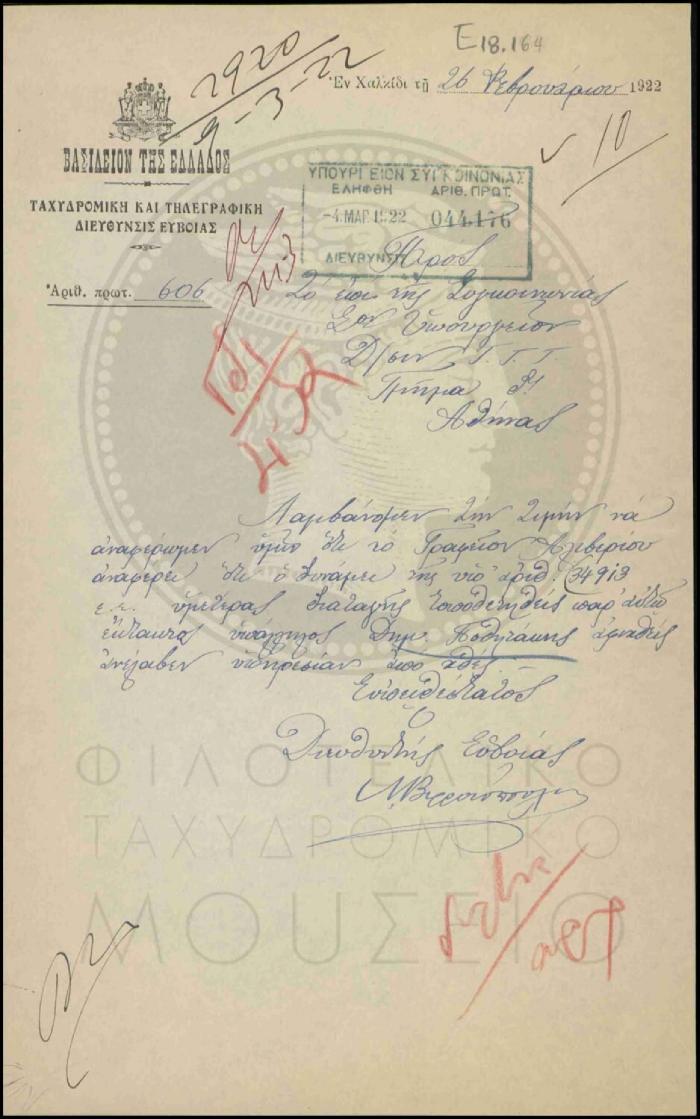 E18.164
2920
9-3-22
Ἐν Χαλκίδι τῇ 26 Φεβρουαρίου 1922
10
ΒΑΣΙΛΕΙΟΝ ΤΗΣ ΕΛΛΑΔΟΣ
ΤΑΧΥΔΡΟΜΙΚΗ ΚΑΙ ΤΗΛΕΓΡΑΦΙΚΗ
ΔΙΕΥΘΥΝΣΙΣ ΕΥΒΟΙΑΣ
ΥΠΟΥΡΓΕΙΟΝ ΣΥΓΚΟΙΝΩΝΙΑΣ
ΕΛΗΦΘΗ ΑΡΙΘ. ΠΡΩΤ.
-4.ΜΑΡ.1922 044176
ΔΙΕΥΘΥΝΣΙΣ
Ἀριθ. πρωτ. 606
Πρὸς
Τὸ ἐπὶ τῆς Συγκοινωνίας
Σον Ὑπουργεῖον
Δ/σιν Τ.Τ.Τ.
Τμῆμα
Ἀθήνας
Λαμβάνομεν τὴν τιμὴν νὰ
ἀναφέρωμεν ὑμῖν ὅτι τὸ Γραφεῖον Ἀλιβερίου
ἀναφέρει ὅτι ὁ δυνάμει τῆς ὑπ' ἀριθ. 34913
ε.ε. ὑμετέρας διαταγῆς τοποθετηθεὶς παρ' αὐτῷ
ἔκτακτος ὑπάλληλος Δημ. Ποθητάκης ἀφιχθεὶς
ἀνέλαβεν ὑπηρεσίαν ἀπὸ χθές.
Εὐπειθέστατος
Ὁ
Διευθυντὴς Εὐβοίας
ΦΙΛΟΤΕΛΙΚΟ
ΤΑΧΥΔΡΟΜΙΚΟ
ΜΟΥΣΕΙΟ